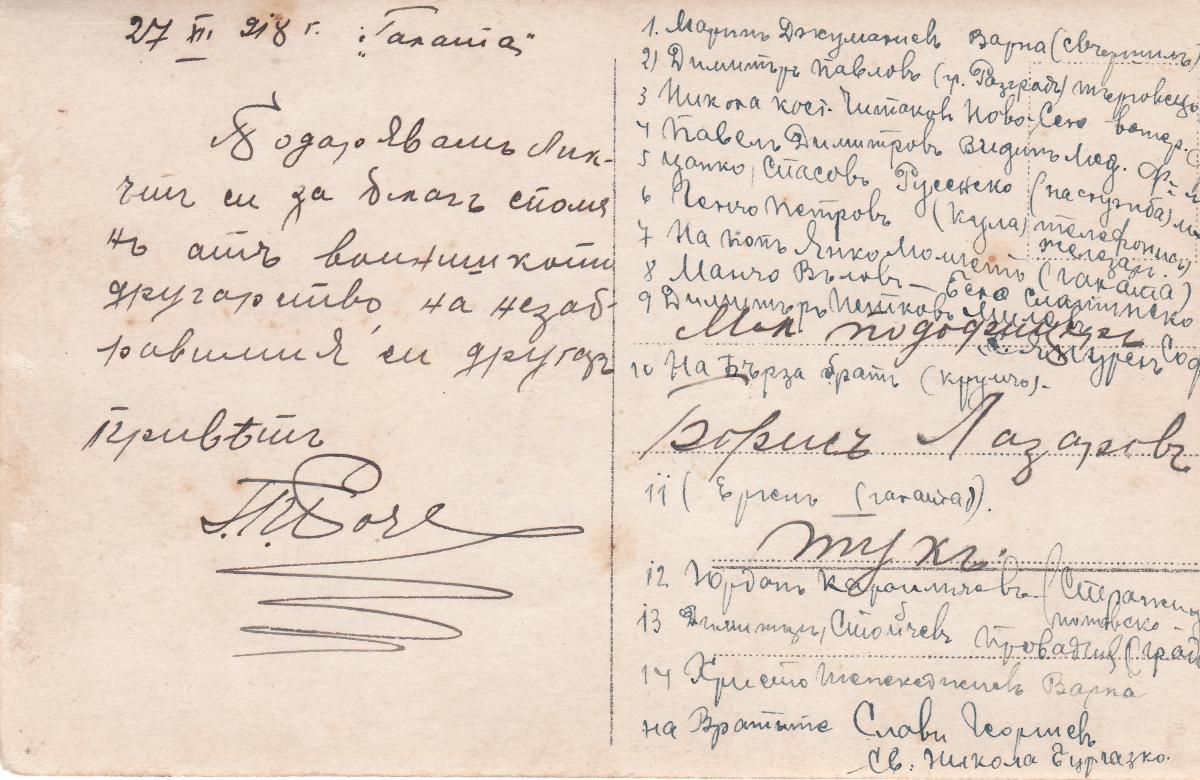 27 XI. 918 г. "Галата"
Подарявамъ Лик-
чит си за благъ споме
нъ отъ воинишкото
другарство на незаб-
равимия си другаръ
Привѣтъ
1. Маринъ Джуманиевъ Варна (свечтилъ)
2) Димитъръ Павловъ (гр. Разградъ) търговецъ
3 Никола Кост. Читаковъ Ново-Село ветер.
4 Павелъ Димитровъ Видинъ Мед.
5 Цанко, Спасовъ Русенско (на служба)
6 Генчо Петровъ (Кула) телефонистъ
7 На потъ Янко Момчето (галата) железар.
8 Манчо Въловъ – Бела Слатинско
9 Димитъръ Петковъ Милевъ
Мл. подофицеръ
10 На Бърза братъ (крумчо).
Борисъ Лазаровъ
11 ( Ергенъ (галата)).
тукъ.
12 Юрданъ Караиличевъ (Стражица
поповско
13 Димитъръ, Стойчевъ Провадия (град
14 Христо Шепкеджиевъ Варна
на Вратыте Слави Георгиевъ
Св: Никола Бургазко.